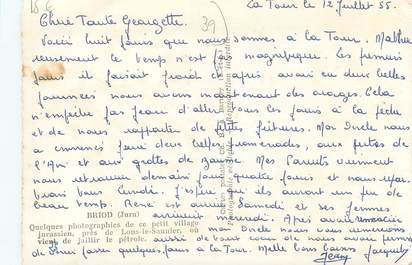 La Tour le 12 Juillet 55.
Chère Tante Georgette.
39
Voici huit jours que nous sommes à la Tour. Malheu
reusement le temps n'est pas magnifique. Les premiers
jours il faisait froid et après avoir eu deux belles
journées nous avons maintenant des orages. Cela
n'empêche pas Jean d'aller tous les jours à la pêche
et de nous rapporter de petites fritures. Mon Oncle nous
a emmenés faire deux belles promenades, aux pertes de
l'Ain et aux grottes de Baume. Mes Parents viennent
nous retrouver demain pour quatre jours et nous repar-
tirons tous Lundi. J'espère qu'ils auront un peu de
beau temps. René est arrivé Samedi et ses femmes
arrivent Lundi. Après avoir remercié
mon Oncle nous vous remercions
aussi de tout cœur de nous avoir permis
de venir passer quelques jours à la Tour. Mille bons baisers
BRIOD (Jura)
Quelques photographies de ce petit village
jurassien, près de Lons-le-Saunier, où
vient de jaillir le pétrole.
Reproduction interdite